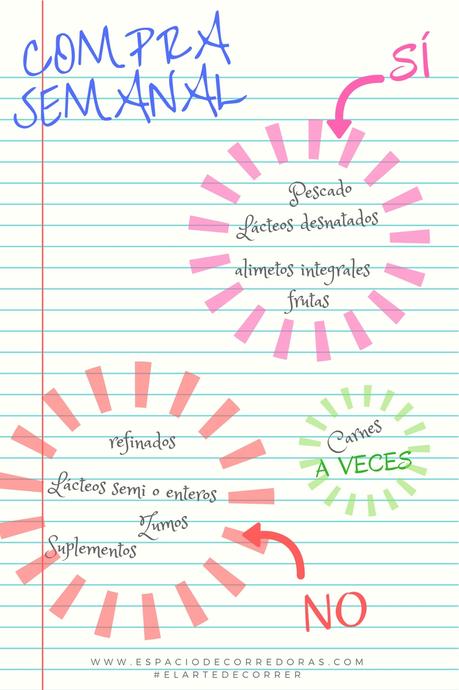 COMPRA
SEMANAL
SÍ
Pescado
Lácteos desnatados
alimetos integrales
frutas
Carnes
A VECES
refinados
Lácteos semi o enteros
Zumos
Suplementos
NO
WWW.ESPACIODECORREDORAS.COM
#ELARTEDECORRER